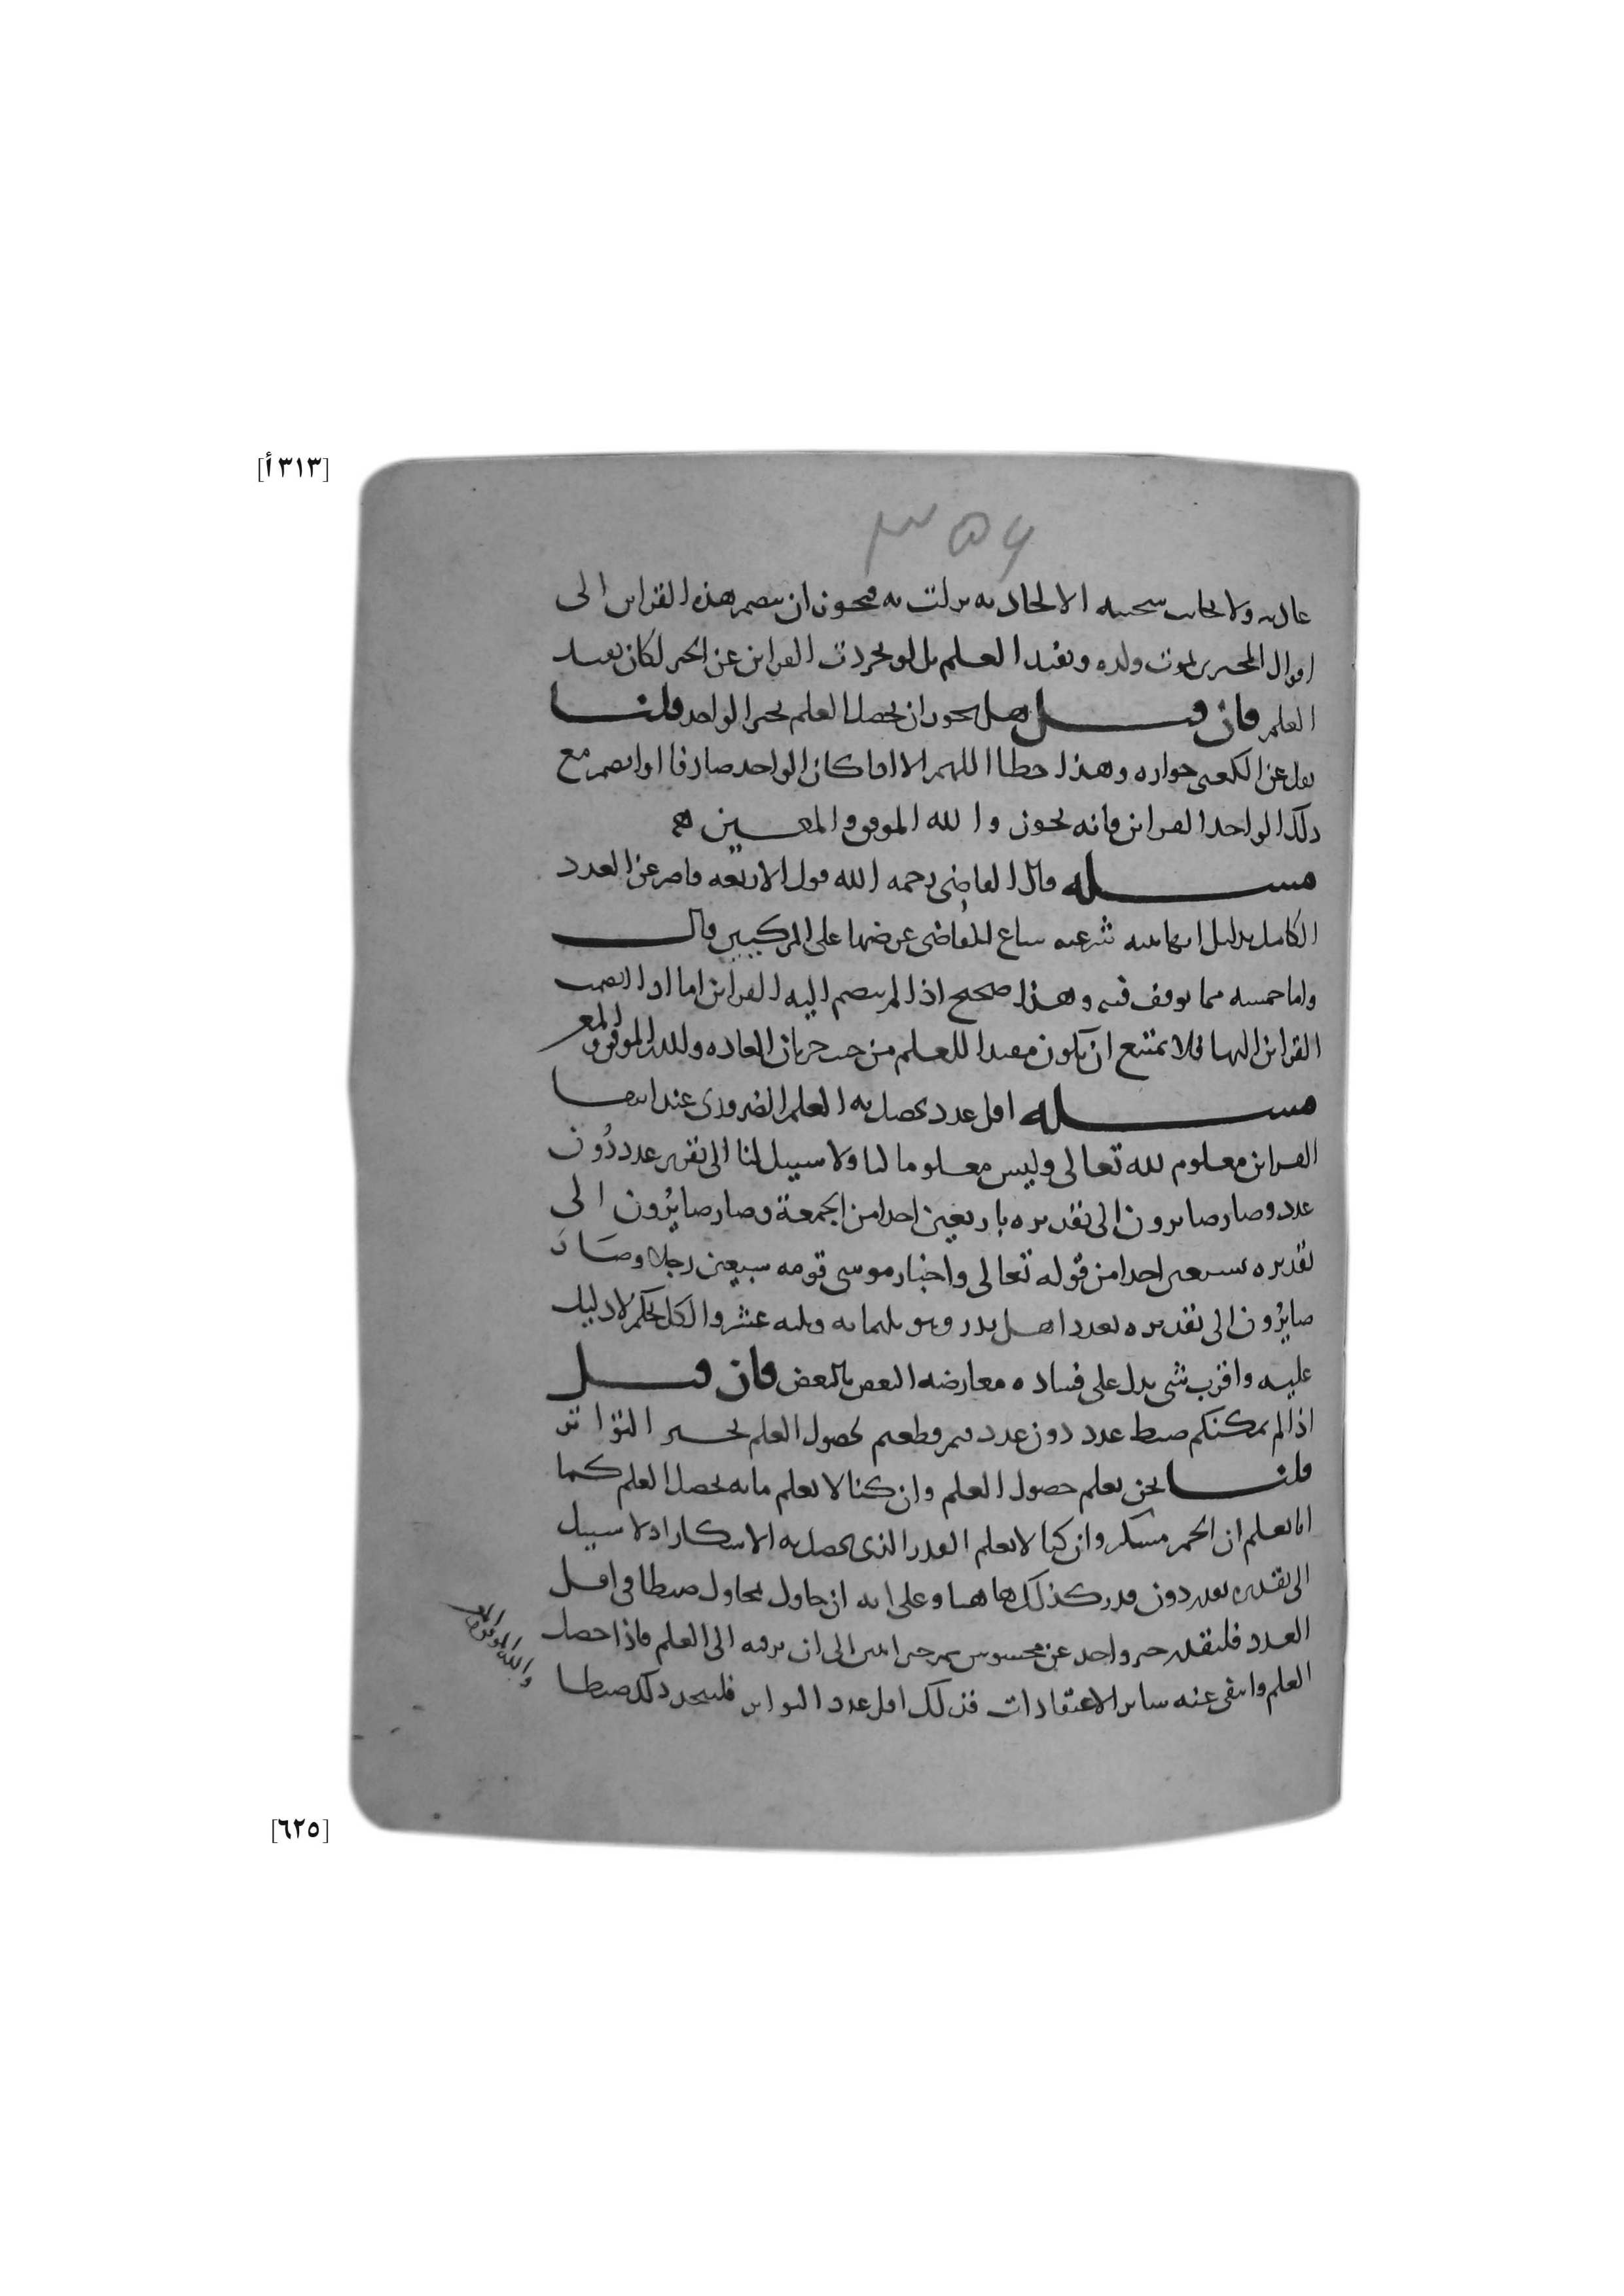 [٣١٣أ]
٣٥٦
عادته ولا يخالف سجيته الا لحادثه نزلت به فيجوز ان ينضم هذه القراين الى
اقوال المخبرين بموت ولده ويفيد العلم بل لو تجردت القراين عن الخبر لكان يفيد
العلم فان قيل هل يجوز ان يحصل العلم بخبر الواحد قلنا
نقل عن الكعبي جوازه وهذا خطا اللهم الا اذا كان الواحد صادقا او انضم مع
ذلك الواحد القراين فانه يجوز والله الموفق والمعين
مسله قال القاضي رحمه الله قول الاربعه قاصر عن العدد
الكامل بدليل انها بينه شرعيه ساغ للقاضي عرضها على المزكيين قال
واما خمسه مما توقف فيه وهذا صحيح اذا لم ينضم اليه القراين اما اذا انضمت
القراين اليها فلا يمتنع ان يكون مفيدا للعلم من حيث جريان العاده والله الموفق والمعين
مسله اقل عدد يحصل به العلم الضروري عند انتفا
القراين معلوم لله تعالى وليس معلوما لنا ولا سبيل لنا الى تقدير عدد دون
عدد وصار صايرون الى تقديره باربعين احدا من الجمعة وصار صايرون الى
تقديره بسبعين احدا من قوله تعالى واختار موسى قومه سبعين رجلا وصار
صايرون الى تقديره بعدد اهل بدر وهو ثلثمايه وثلثه عشر والكل تحكم لا دليل
عليه واقرب شي يدل على فساده معارضه البعض بالبعض فان قيل
اذا لم يمكنكم ضبط عدد دون عدد فبم قطعتم بحصول العلم بخبر التواتر
قلنا نحن نعلم حصول العلم وان كنا لا نعلم ما به يحصل العلم كما
انا نعلم ان الخمر مسكر وان كنا لا نعلم القدر الذي يحصل به الاسكار اذ لا سبيل
الى تقديره بقدر دون قدر كذلك هاهنا وعلى انه ان حاول محاول ضبطا في اقل
العدد فليقدر خبر واحد عن محسوس ثم خبر اثنين الى ان يرقيه الى العلم فاذا حصل
العلم وانتفى عنه ساير الاعتقادات فذلك اقل عدد التواتر فليتخذ ذلك ضبطا
والله الموفق
[٦٢٥]